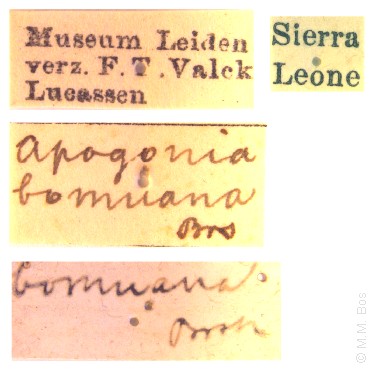 Museum Leiden
verz. F. T. Valck
Lucassen
Sierra
Leone
Apogonia
bomuana
Brs
bomuana
Brsk
© M.M. Bos